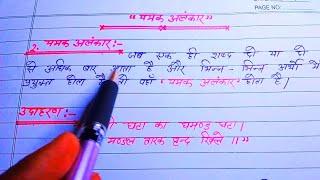 "यमक अलंकार"
2. यमक अलंकार:-
जब एक ही शब्द दो या दो
से अधिक बार आता है और भिन्न-भिन्न अर्थों में
प्रयुक्त होता है वहाँ "यमक अलंकार" होता है।
उदाहरण:-
घटा का घमण्ड घटा।
मण्डल तारक वृन्द खिले॥"